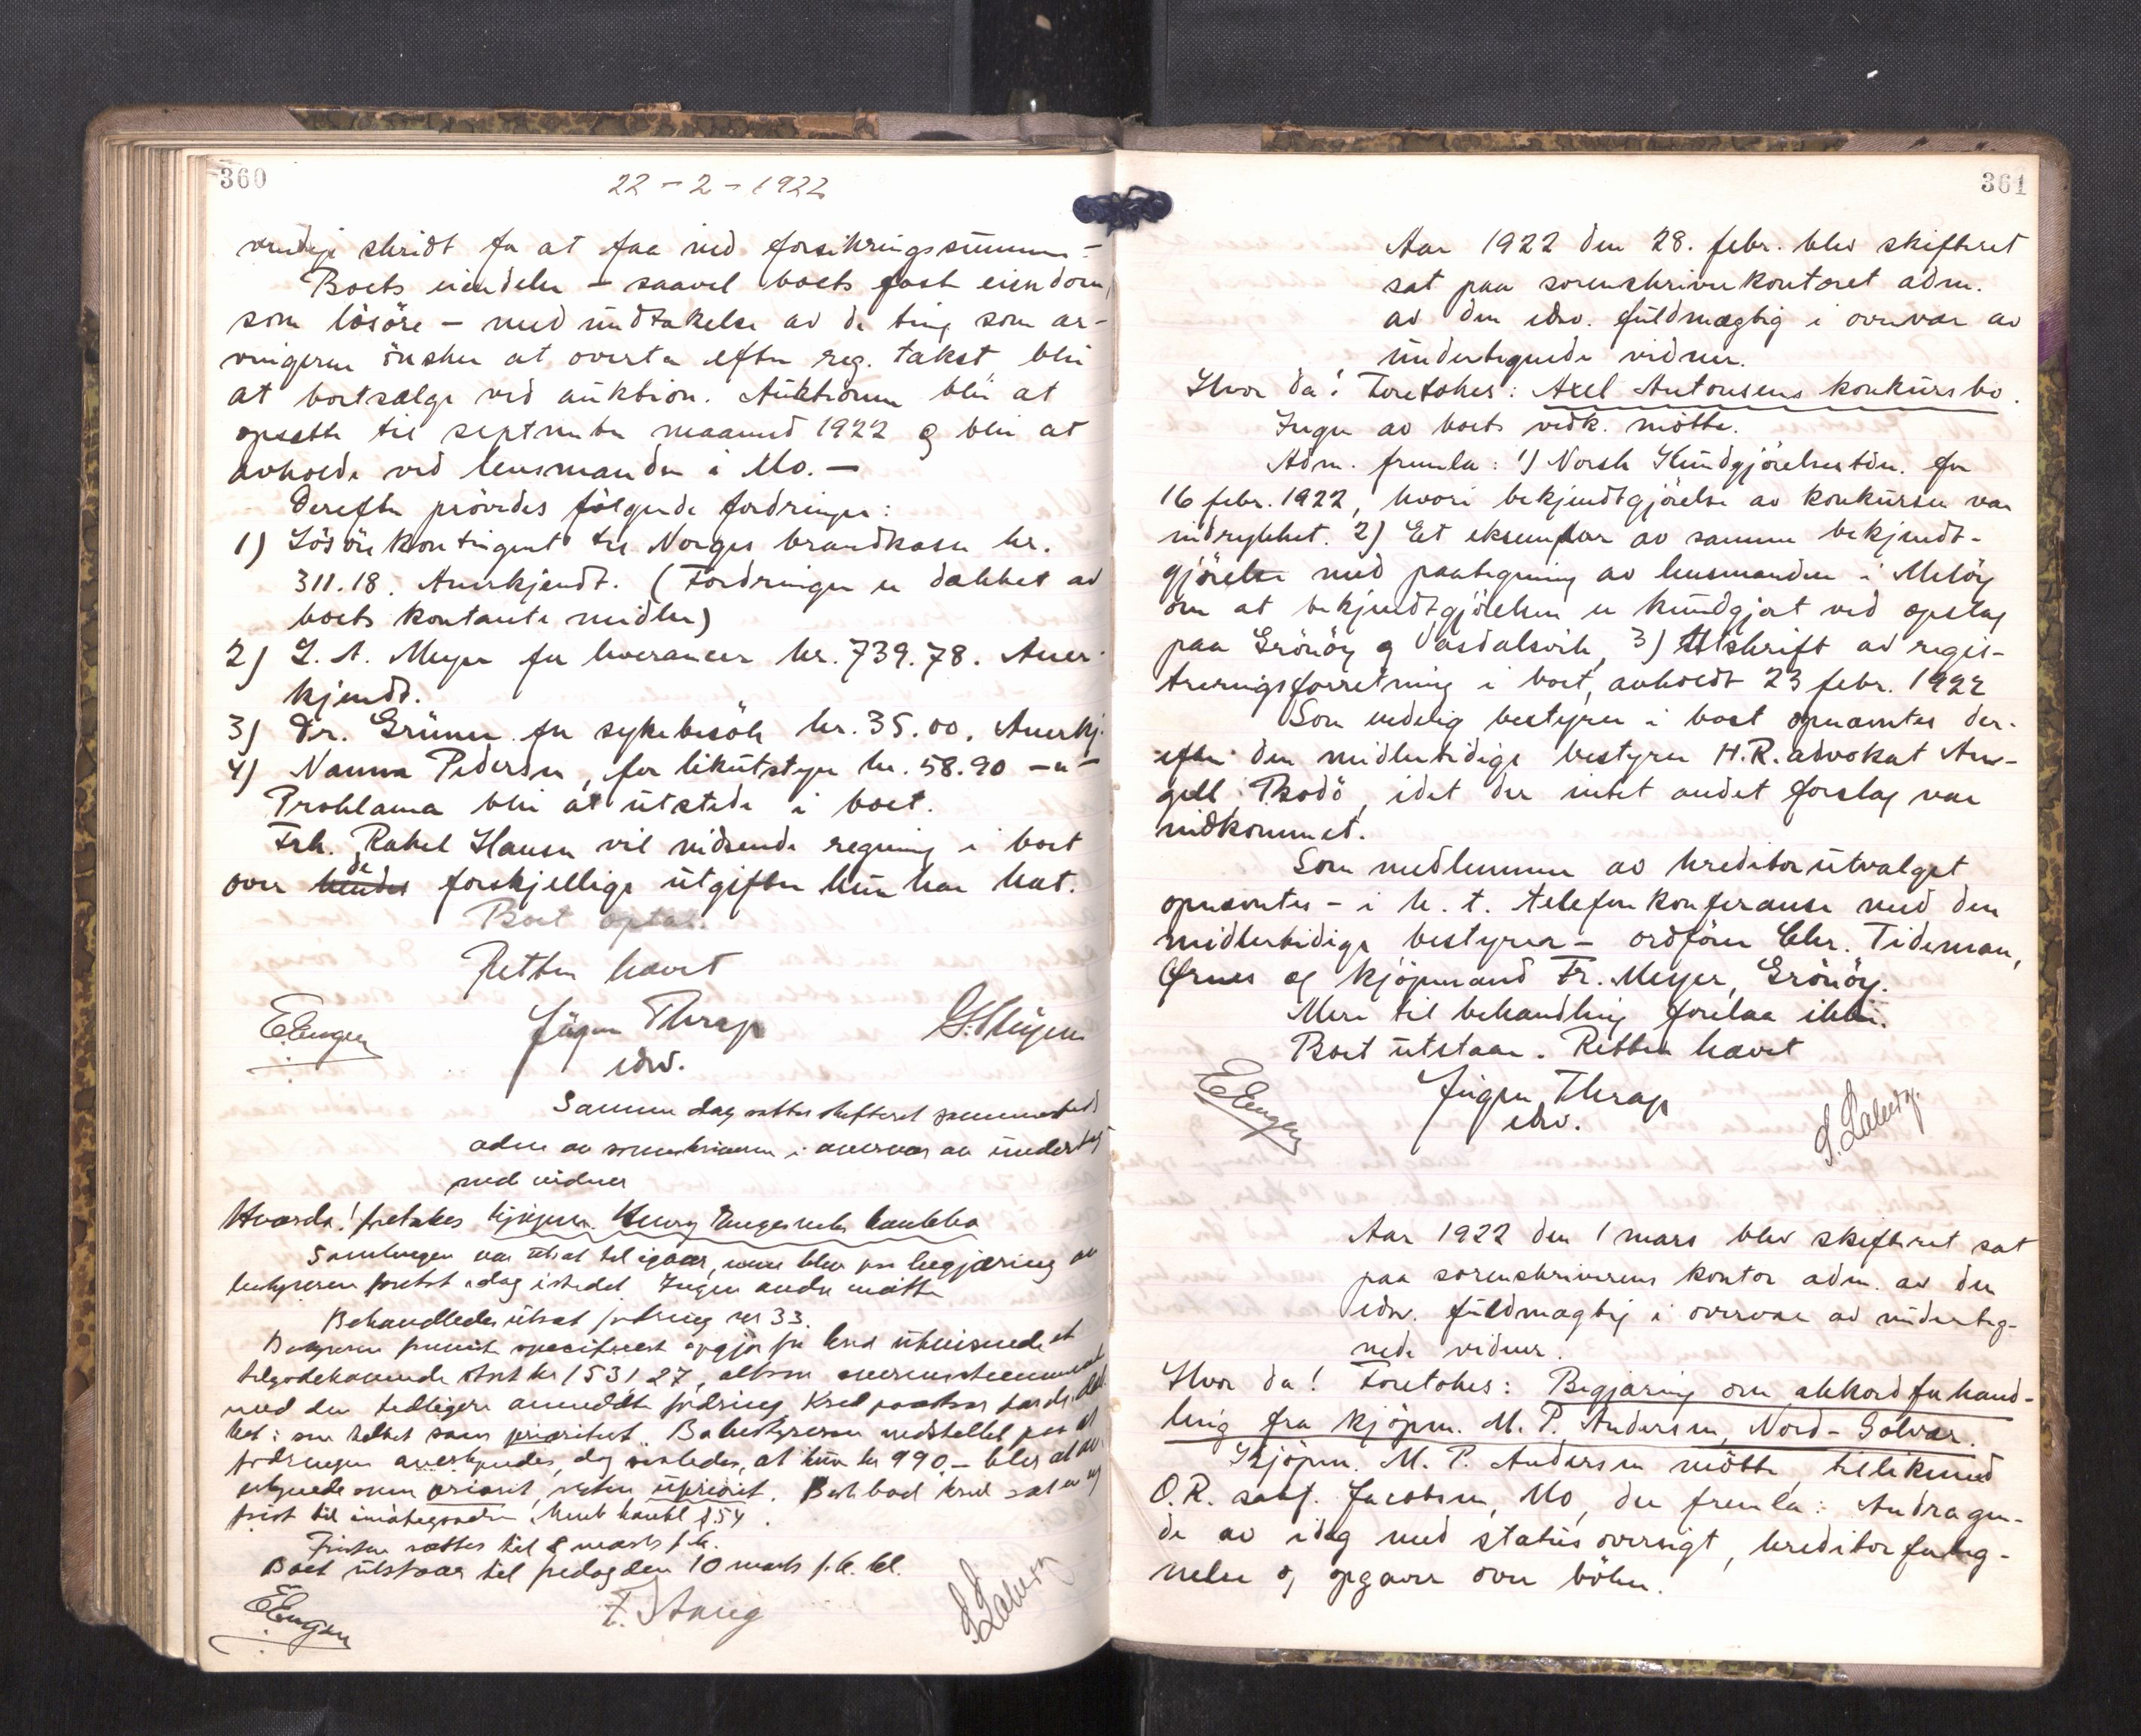 360
22 - 2 - 1922
skridt for at faa ind forsikringssummen -
Boets eiendeler - saavel boets fast eiendom,
som lösöre - med undtakelse av de ting som ar-
vingerne önsker at overta efter reg. takst, blir
at bortsælge ved auktion. Auktionen blir at
opsætte til september maaned 1922 og blir at
avholde ved lensmanden i Mo. -
Derefter prövedes fölgende fordringer:
1) Lösörekontingent til Norges brandkasse kr.
311.18. Anerkjendt. (Fordringen er dækket av
boets kontante midler)
2) L. A. Meyer for leverancer kr. 739.78. Aner-
kjendt.
3) Dr. Grüner for sykebesök kr. 35.00. Anerkj.
4) Nanna Pedersen, for likutstyr kr. 58.90 -"-
Proklama blir at utstede i boet.
Frk. Rakel Hansen vil indsende regning i boet
de
over hendes forskjellige utgifter hun har hat.
Boet opta
Retten hævet
E Engen Jürgen Thrap
edsv.
Samme dag sattes skifteret sammesteds
adm av sorenskriveren i overvær av underteg
nede vidner
Hvorda! foretokes kjöpm. Konkbo
Samlingen var utsat til igaar, men blev paa begjæring av
bestyreren foretat idag istedet. Ingen andre mötte
Behandledes utsat fordring nr 33.
Bestyreren fremla specificert opgjör fra kred utvisende et
tilgodekommende stort kr 1531 27, altsaa overensstemmende
med den tidligere anmeldte fordring. Kred paastaar
i sin helhet som prioritert. Bobestyreren nedstillet paa at
fordringen anerkjendes, dog saaledes, at kun kr 990.- blir at
utlignede som priorit, resten upriorit. kred sat en
frist til imötegaaelse konkl § 54.
Fristen sættes til 8 marts f. k.
Boet utstaar til fredag den 10 marts f. k. kl.
E Engen
361
Aar 1922 den 28. febr. blev skifteret
sat paa sorenskriverkontoret adm.
av den edsv. fuldmægtig i overvær av
undertegnede vidner.
Hvor da! Foretokes: Axel Antonsens konkursbo.
Ingen av boets vedk. mötte.
Adm. fremla: 1) Norsk Kundgjörelsestid. for
16 febr. 1922, hvori bekjendtgjörelse av konkursen var
indrykket. 2) Et eksemplar av samme bekjendt-
gjörelse med paategning av lensmanden i Melöy
om at bekjendtgjörelsen er kundgjort ved opslag
paa Grönöy og Vasdalsvik, 3) Utskrift av regis-
treringsforretning i boet, avholdt 23 febr. 1922
Som endelig bestyrer i boet opnævntes der-
efter den midlertidige bestyrer H.R.advokat An-
gell, Bodö, idet der intet andet forslag var
indkommet.
Som medlemmer av kreditorutvalget
opnævntes - i h. t. telefonkonferanse med den
midlertidige bestyrer - ordförer Chr. Tideman,
Ørnes og kjöpmand Fr. Meyer, Grönöy.
Mere til behandling forelaa ikke.
Boet utstaar. Retten hævet
E Engen Jürgen Thrap
edsv.
Aar 1922 den 1 mars blev skifteret sat
paa sorenskriverens kontor adm. av den
edsv. fuldmægtig i overvær av underteg-
nede vidner.
Hvor da! Foretokes: Begjæring om akkordforhand-
ling fra kjöpm. M. P. Andersen, Nord-Solvær.
Kjöpm. M. P. Andersen mötte, tillikemed
O.R. sakf. Jacobsen, Mo, der fremla: Andragen-
de av idag med statusoversigt, kreditorforteg-
nelse og opgaver over böker.